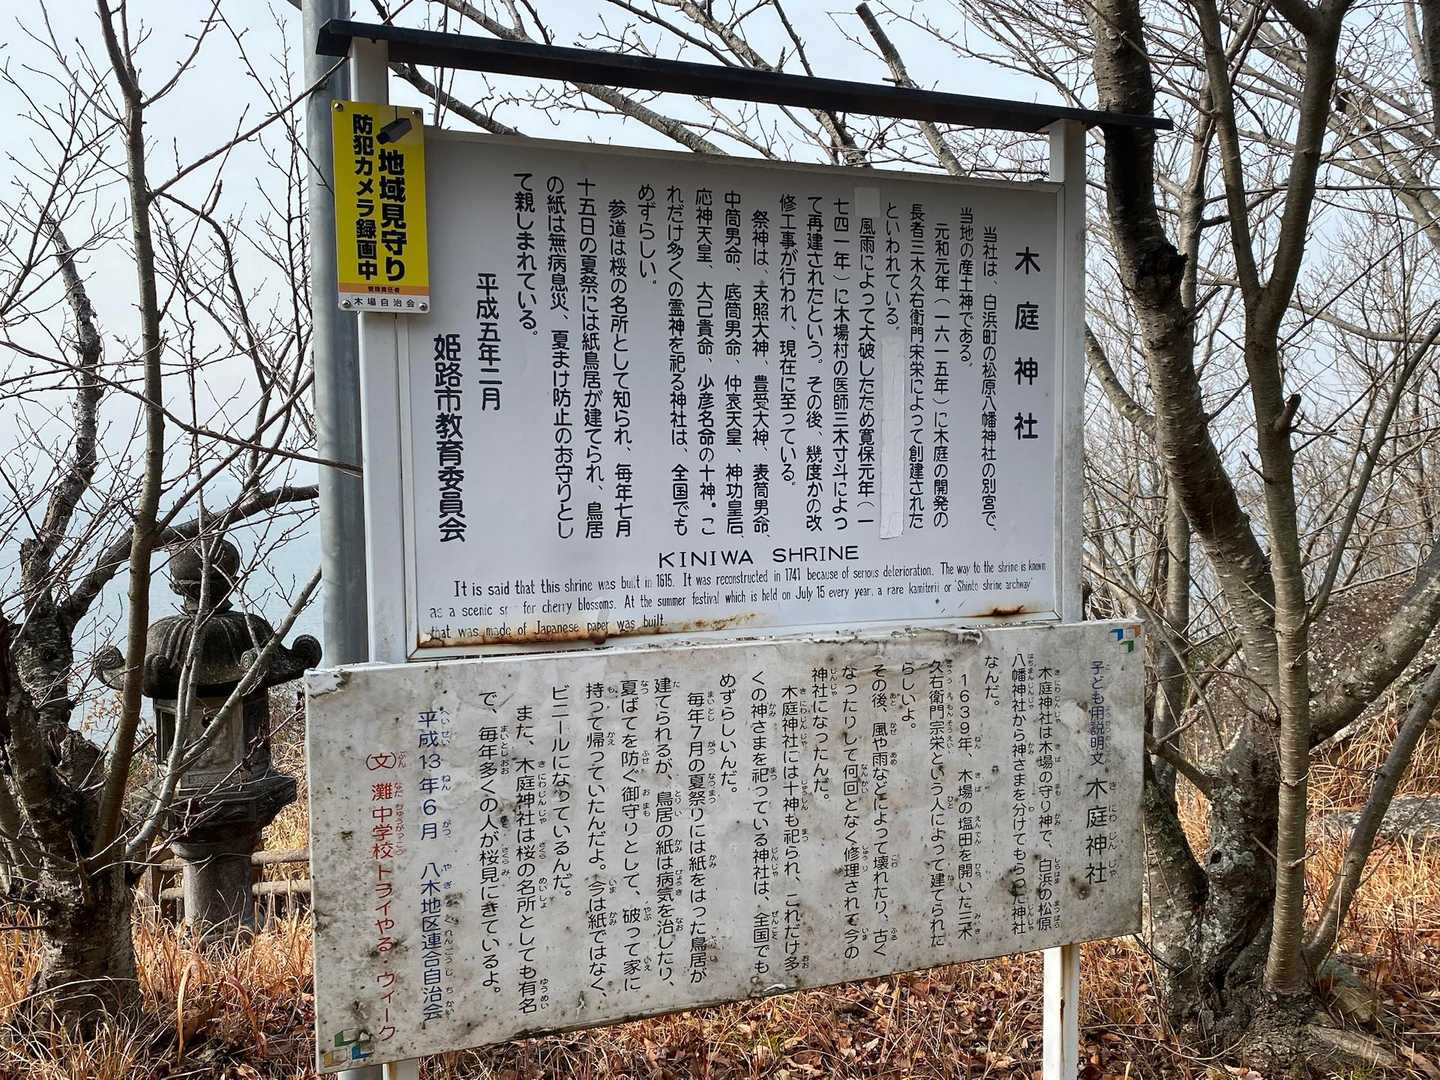 防犯カメラ録画中
地域見守り
管理責任者
木場自治会
木庭神社
当社は、白浜町の松原八幡神社の別宮で、
当地の産土神である。
元和元年(一六一五年)に木庭の開発の
長者三木久右衛門宋栄によって創建された
といわれている。
風雨によって大破したため寛保元年(一
七四一年)に木場村の医師三木寸斗によっ
て再建されたという。その後、幾度かの改
修工事が行われ、現在に至っている。
祭神は、天照大神、豊受大神、表筒男命、
中筒男命、底筒男命、仲哀天皇、神功皇后、
応神天皇、大己貴命、少彦名命の十神。こ
れだけ多くの霊神を祀る神社は、全国でも
めずらしい。
参道は桜の名所として知られ、毎年七月
十五日の夏祭には紙鳥居が建てられ、鳥居
の紙は無病息災、夏まけ防止のお守りとし
て親しまれている。
平成五年二月
姫路市教育委員会
KINIWA SHRINE
It is said that this shrine was built in 1615. It was reconstructed in 1741 because of serious deterioration. The way to the shrine is known
as a scenic for cherry blossoms. At the summer festival which is held on July 15 every year, a rare kamitorii or 'Shinto shrine archway'
that was made of Japanese paper was built.
子ども用説明文 木庭神社
木庭神社は木場の守り神で、白浜の松原
八幡神社から神さまを分けてもらった神社
なんだ。
1639年、木場の塩田を開いた三木
久右衛門宗栄という人によって建てられた
らしいよ。
その後、風や雨などによって壊れたり、古く
なったりして何回となく修理されて今の
神社になったんだ。
木庭神社には十神も祀られ、これだけ多
くの神さまを祀っている神社は、全国でも
めずらしいんだ。
毎年7月の夏祭りには紙をはった鳥居が
建てられるが、鳥居の紙は病気を治したり、
夏ばてを防ぐ御守りとして、破って家に
持って帰っていたんだよ。今は紙ではなく、
ビニールになっているんだ。
また、木庭神社は桜の名所としても有名
で、毎年多くの人が桜見にきているよ。
平成13年6月 八木地区連合自治会
(文)灘中学校トライやる・ウィーク